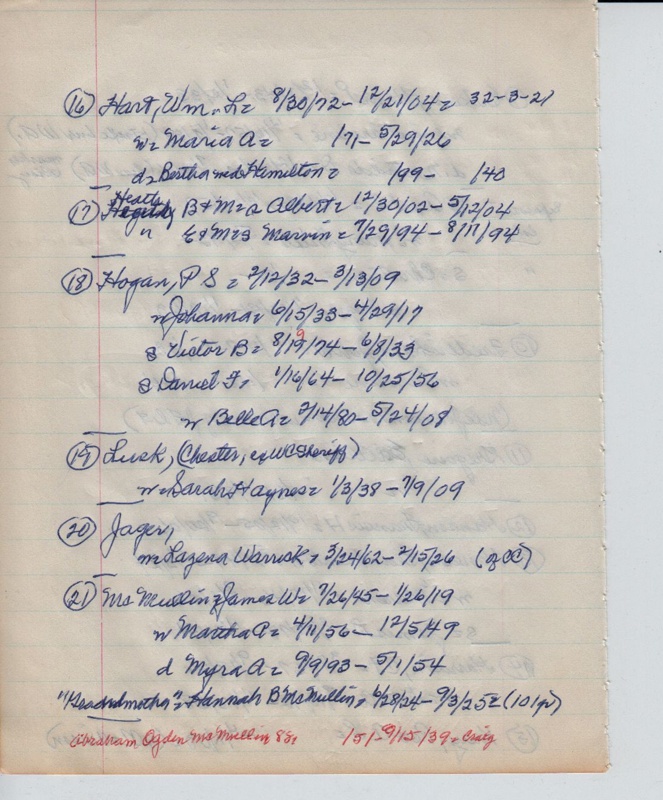 (16) Hart, Wm. L = 8/30/72 - 12/21/04 = 32-3-21
w = Maria A = /71 - 5/29/26
d = Bertha md Hamilton = /99 - /40
(17) Heath B + Mrs Albert = 12/30/02 - 5/12/04
" C + Mrs Marvin = 7/29/94 - 8/11/94
(18) Hogan, P S = 2/12/32 - 3/13/09
w Johanna = 6/15/33 - 4/29/17
s Victor B = 8/19/74 - 6/8/33
s Daniel F = 1/16/64 - 10/25/56
w Belle A = 2/14/80 - 5/24/08
(19) Lusk, (Chester, ex WC Sheriff)
w = Sarah Haynes = 1/3/38 - 7/9/09
(20) Jager,
m = Lazena Warrick = 3/24/62 - 2/15/26 (of CC)
(21) McMullin = James W = 7/26/45 - 1/26/19
w Martha P = 4/11/56 - 12/5/49
d Myra A = 9/9/93 - 5/1/54
= Hannah B McMullin, 6/28/24 - 9/3/25 = (101 yr)
Abraham Ogden McMullin /51 - 9/15/39 = Craig